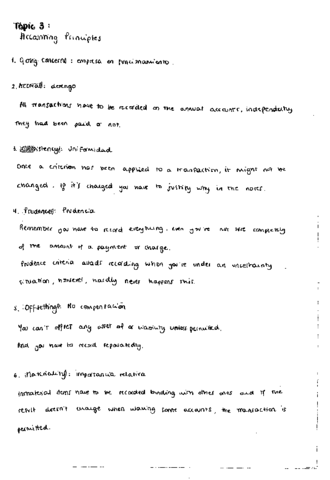 Topic 3:
Accounting Principles
1. Going concern: empresa en funcionamiento.
2. Accrual: devengo
All transactions have to be recorded on the annual accounts, independently
they had been paid or not.
3. Uniformidad
Once a criterion has been applied to a transaction, it might not be
changed. If it's changed you have to justify why in the notes.
4. Prudence: Prudencia
Remember you have to record everything, even you're not sure completely
of the amount of a payment or charge.
Prudence criteria avoids recording when you're under an uncertainty
situation, however, hardly never happens this.
5. Offsetting: No compensación
You can't offset any asset of or liability unless permitted.
And you have to record separatedly.
6. Materiality: importancia relativa
Inmaterial items have to be recorded with others ones and if the
result doesn't change when making some accounts, the transaction is
permitted.